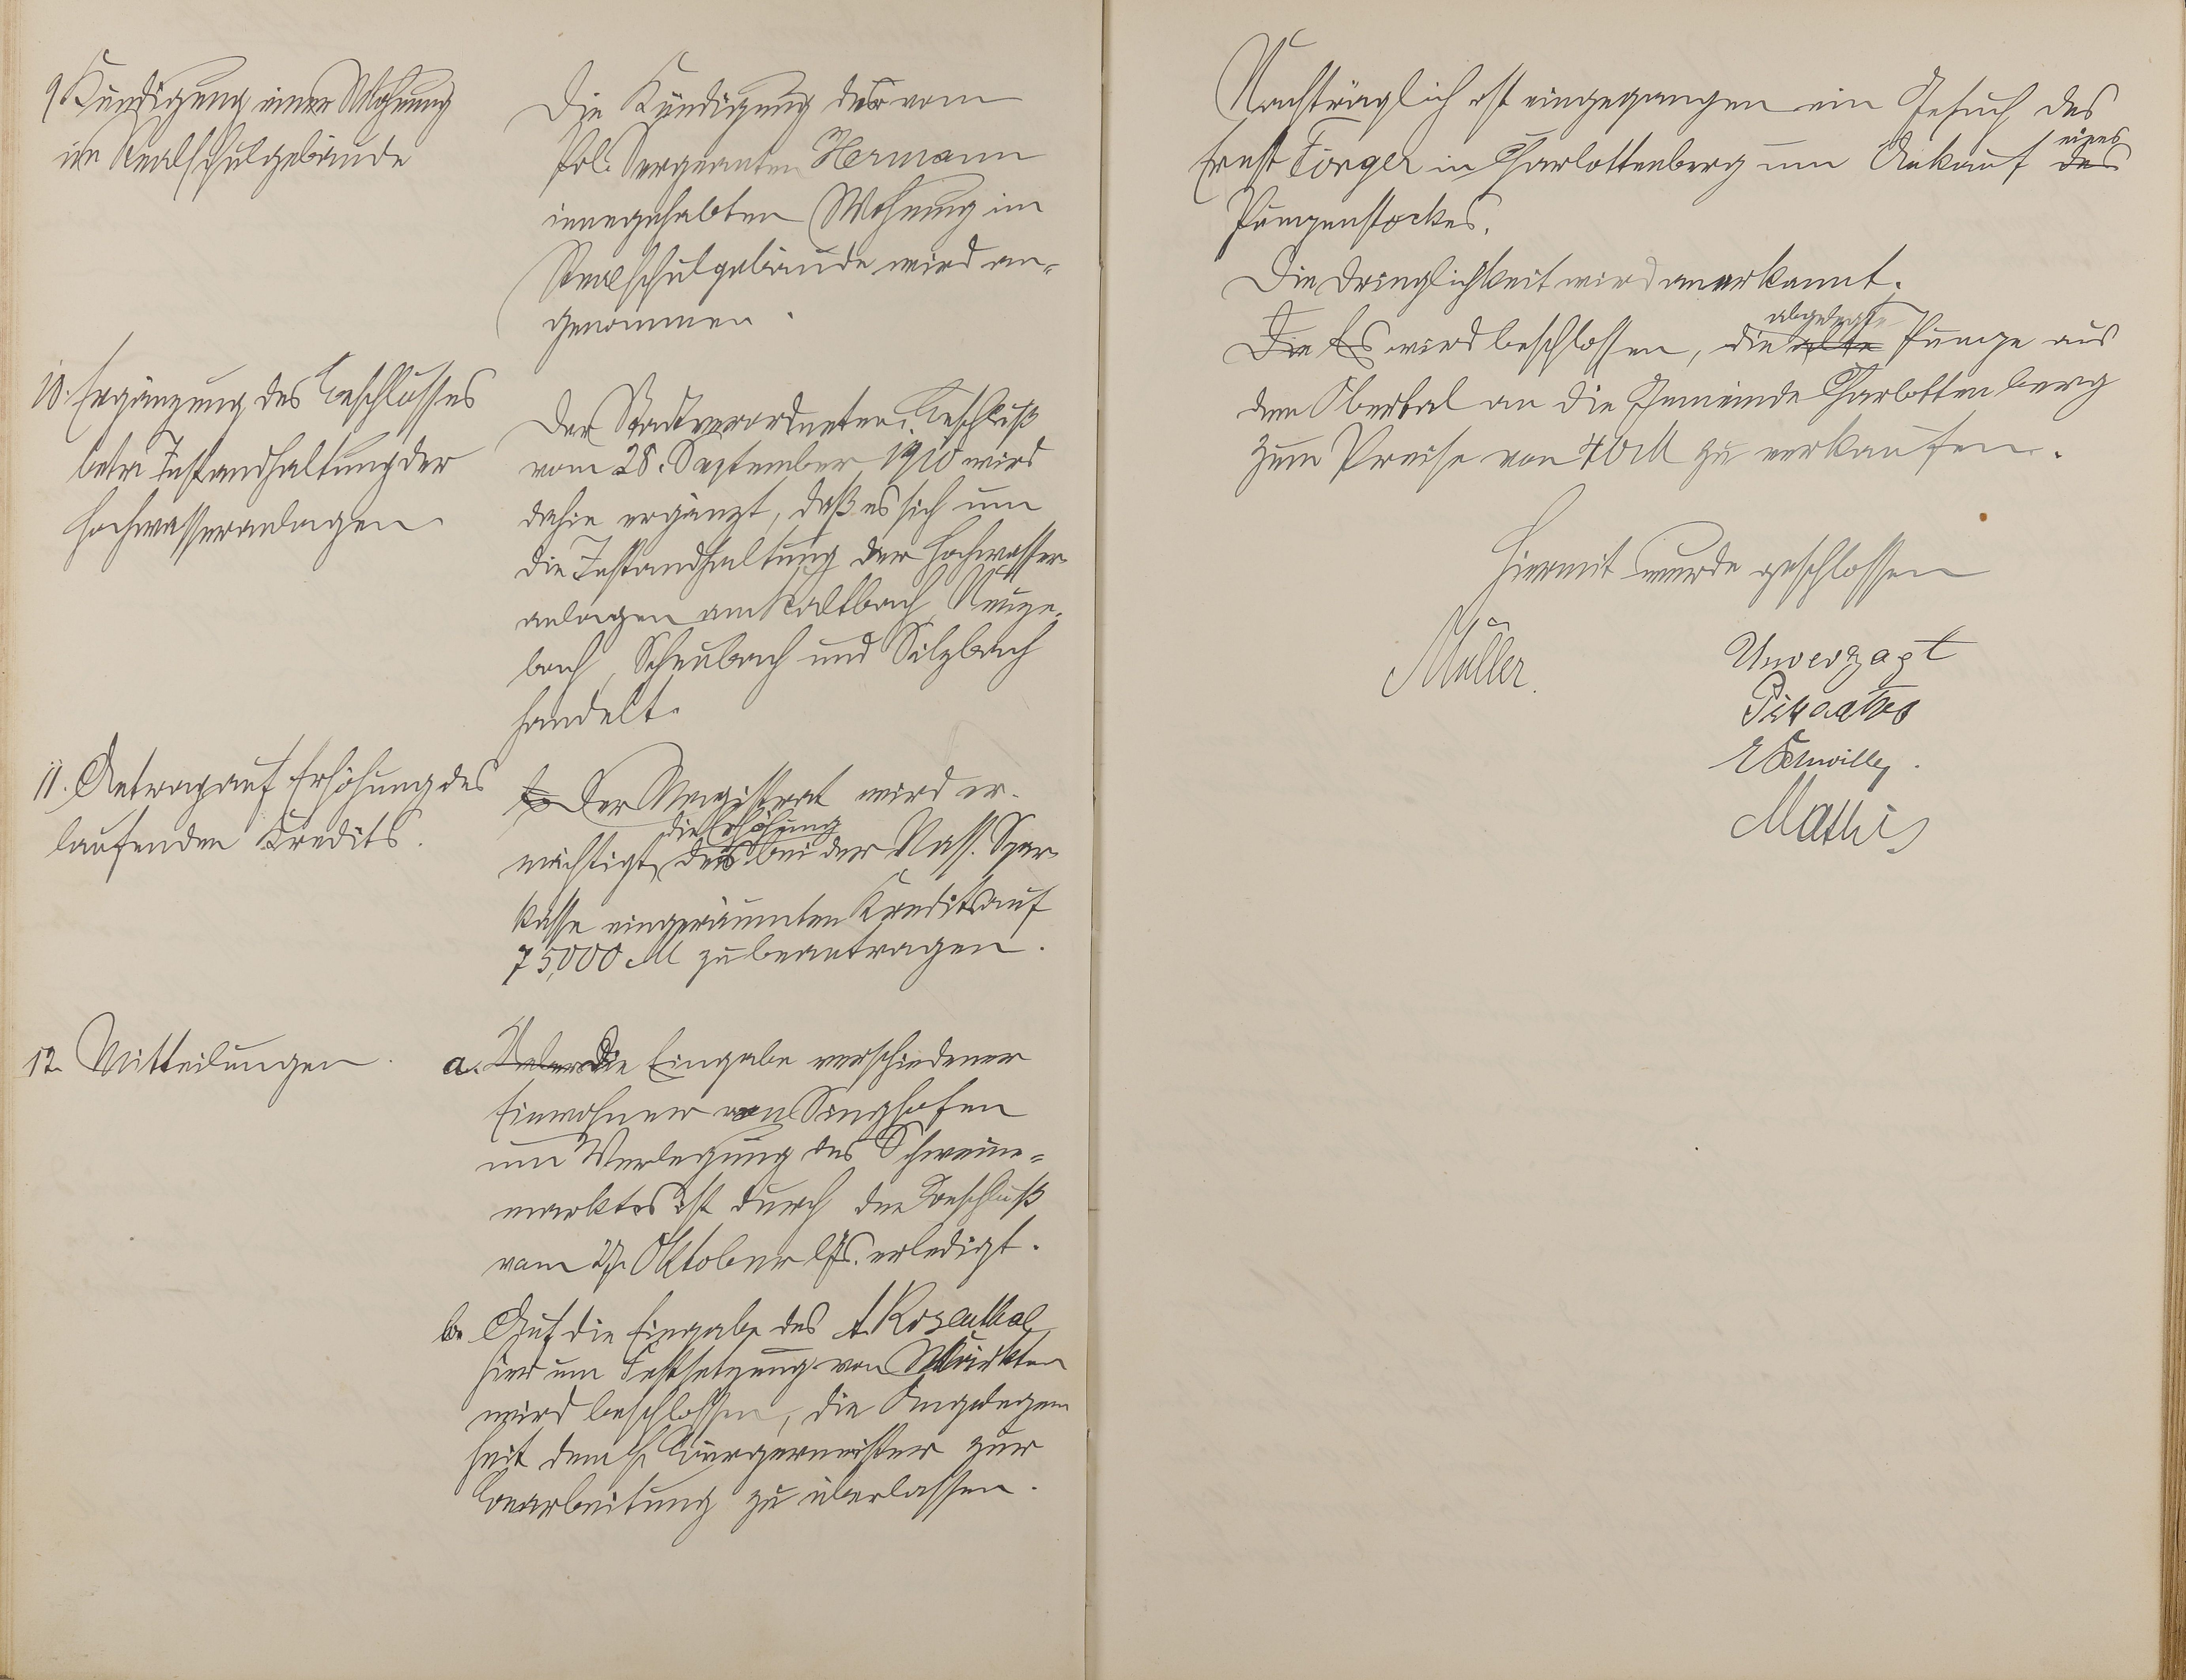 9. Kündigung einer Wohnung
im Realschulgebäude
Die Kündigung der vom
Pol. Sergeanten Hermann
innegehabten Wohnung im
Realschulgebäude wird an-
genommen.
10. Ergänzung des Beschlusses
betr. Instandhaltung der
Hochwasseranlagen
Der Stadtverordneten-Beschluß
vom 28. September 1910 wird
dahin ergänzt, daß es sich um
die Instandhaltung der Hochwasser-
anlagen am Kaltbach, Neuze-
bach, Scheubach und Silzbach
handelt.
11. Antrag auf Erhöhung des
laufenden Kredits.
Der Magistrat wird er-
die Erhöhung
mächtigt, des bei der Nass. Spar-
kasse eingeräumten Kredits auf
75,000 M zu beantragen.
12. Mitteilungen.
a. Ueber Die Eingabe verschiedener
Einwohner von Singhofen
um Verlegung des Schweine-
marktes ist durch den Beschluß
vom 27. Oktober lfs. erledigt.
b. Auf die Eingabe des A. Rosenthal
hier um Festsetzung von Märkten
wird beschlossen, die Angelegen
heit dem H. Bürgermeister zur
Bearbeitung zu überlassen.
Nachträglich ist eingegangen ein Gesuch des
eines
Ernst Förger in Charlottenberg um Ankauf des
Pumpenstockes.
Die Dringlichkeit wird anerkannt.
abgelegte
Die Es wird beschlossen, die alte Pumpe aus
dem Oberthal an die Gemeinde Charlottenberg
zum Preise von 40 M zu verkaufen.
Hiermit wurde geschlossen
Müller.
Unverzagt
E Schwilly.
Mathis